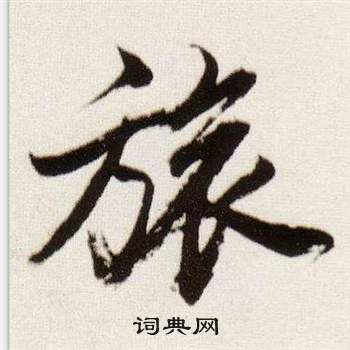 旅
词典网